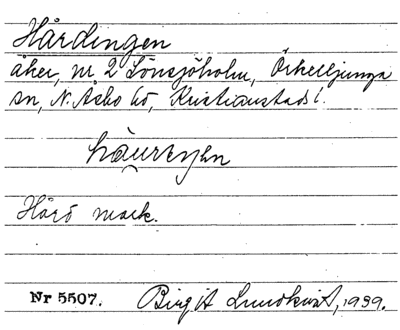 Hårdingen
åker, nr 2 Lönsjöholm, Örkelljunga
sn, N. Åsbo hd, Kristianstads l.
Hård mark.
Nr 5507. Birgit Lundkvist, 1939.